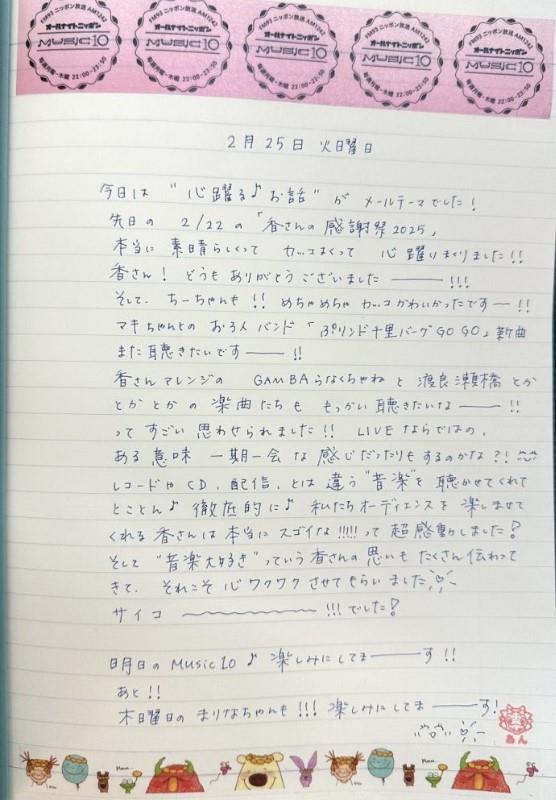 FM93 ニッポン放送 AM1242
オールナイトニッポン
MUSIC10
毎週月曜-木曜 22:00-23:50
FM93 ニッポン放送 AM1242
オールナイトニッポン
MUSIC10
毎週月曜-木曜 22:00-23:50
FM93 ニッポン放送 AM1242
オールナイトニッポン
MUSIC10
毎週月曜-木曜 22:00-23:50
FM93 ニッポン放送 AM1242
オールナイトニッポン
MUSIC10
毎週月曜-木曜 22:00-23:50
FM93 ニッポン放送 AM1242
オールナイトニッポン
MUSIC10
毎週月曜-木曜 22:00-23:50
2月25日 火曜日
今日は "心躍る♪お話" が メールテーマでした!
先日の 2/22の「香さんの感謝祭2025」
本当に 素晴らしくって カッコよくって 心躍りまくりました!!
香さん! どうも ありがとう ございました ――― !!!
そして、ちーちゃんも !! めちゃめちゃ カッコかわいかったです― !!
マキちゃんとの お3人 バンド 「ぷりンド千里バーグ GO GO」新曲
また 聴きたいです ――― !!
香さんアレンジの GAMBAらなくちゃね と 渡良瀬橋 とか
とか とか の 楽曲たち も もっかい 聴きたいな ――― !!
って すごい 思わせられました!! LIVE ならではの、
ある意味 一期一会 な 感じだったりもするのかな?!
レコードや CD、配信、とは 違う "音楽" を 聴かせてくれて
とことん♪ 徹底的に♪ 私たちオーディエンスを 楽しませて
くれる 香さんは 本当に スゴイな !!!!! って 超感動しました!
そして "音楽大好き" っていう 香さんの 思いも たくさん 伝わって
きて、それこそ 心 ワクワク させて もらいました
サイコ 〜〜〜 !!! でした!
明日の Music10 ♪ 楽しみにしてま ――― す !!
あと !!
木曜日の まりなちゃんも !!! 楽しみにしてま ――― す!
あん